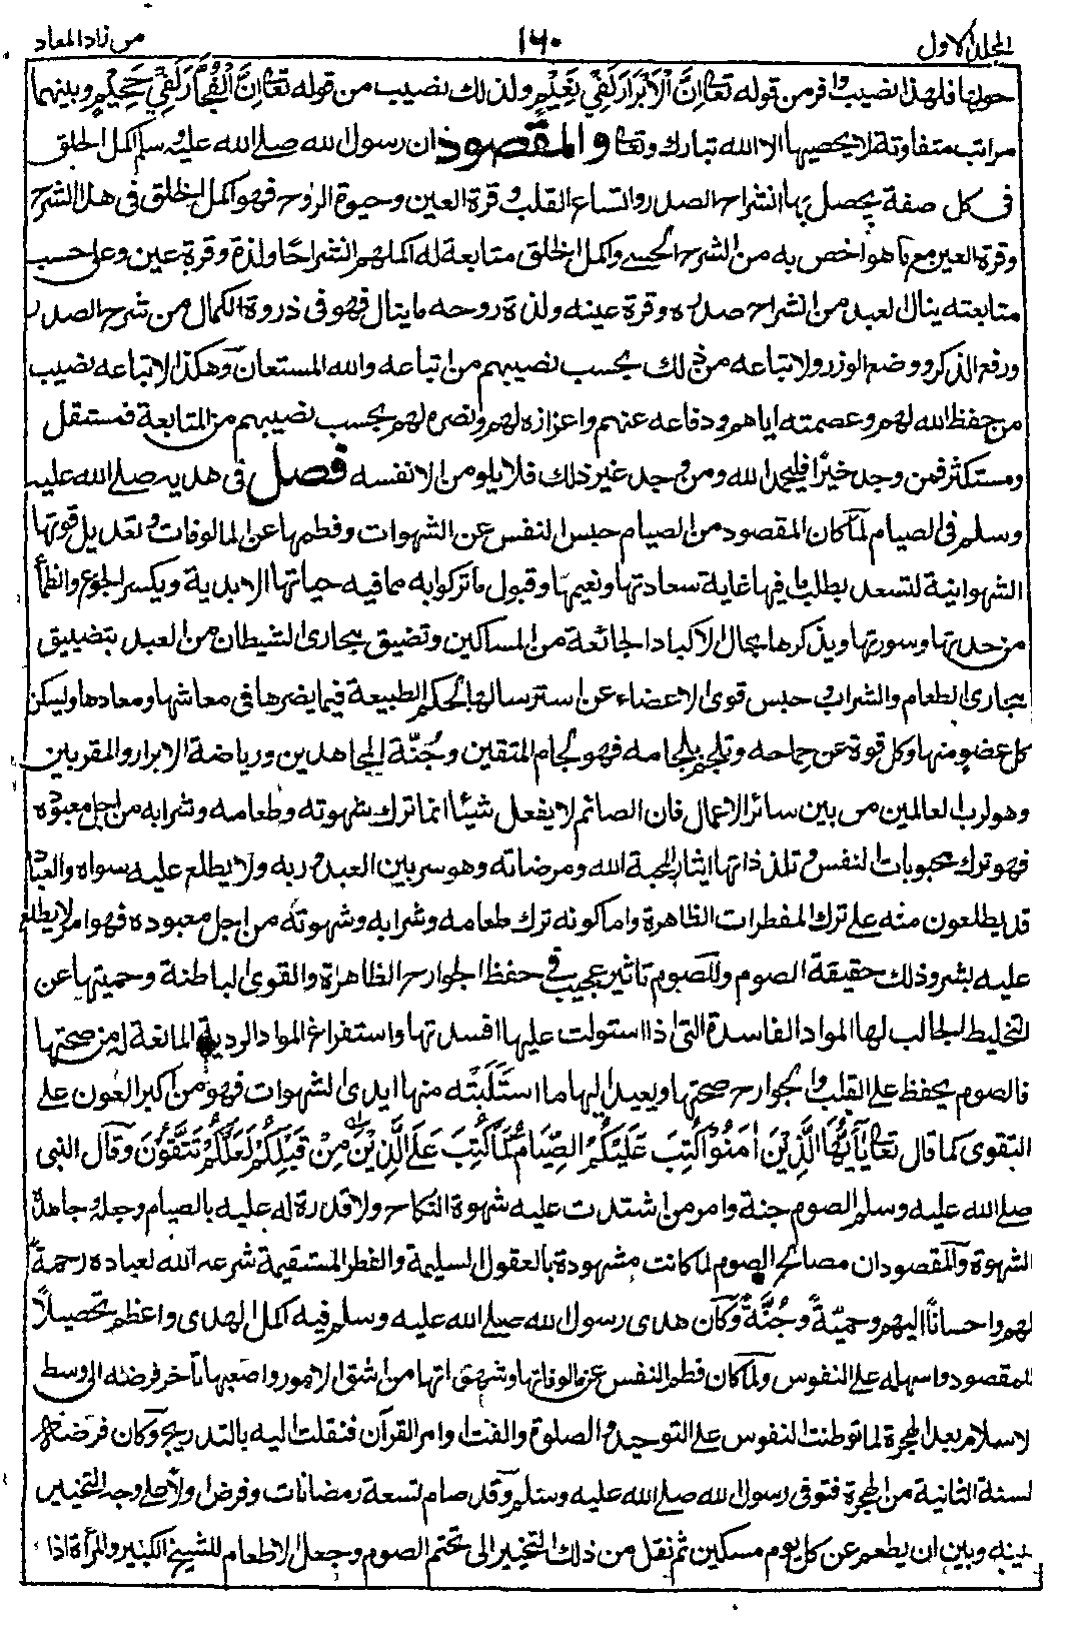 المجلد الاول
١٦٠
من زاد المعاد
حولها فلهذا نصيب وافر من قوله تعالى اِنَّ الْاَبْرَارَ لَفِيْ نَعِيْمٍ ولذلك نصيب من قوله تعالى اِنَّ الْفُجَّارَ لَفِيْ جَحِيْمٍ وبينهما
مراتب متفاوتة لا يحصيها الا الله تبارك وتعالى والمقصود ان رسول الله صلى الله عليه وسلم اكمل الخلق
فى كل صفة يحصل بها انشراح الصدر واتساع القلب وقرة العين وحيوة الروح فهو اكمل الخلق فى هذا الشرح
وقرة العين مع ما هو اخص به من الشرح الحسى واكمل الخلق متابعة له اكملهم انشراحًا ولذة وقرة عين وعلى حسب
متابعته ينال العبد من انشراح صدره وقرة عينه ولذة روحه ما ينال فهو فى ذروة الكمال من شرح الصدر
ورفع الذكر ووضع الوزر ولاتباعه من ذلك بحسب نصيبهم من اتباعه والله المستعان وهكذا لاتباعه نصيب
من حفظ الله لهم وعصمته اياهم ودفاعه عنهم واعزازه لهم ونصره لهم بحسب نصيبهم من المتابعة فمستقل
ومستكثر فمن وجد خيرًا فليحمد الله ومن وجد غير ذلك فلا يلومن الا نفسه فصل فى هديه صلى الله عليه
وسلم فى الصيام لمّا كان المقصود من الصيام حبس النفس عن الشهوات وفطمها عن المالوفات وتعديل قوتها
الشهوانية لتسعد بطلب ما فيها غاية سعادتها ونعيمها وقبول ما تزكوا به مما فيه حياتها الابدية ويكسر الجوع والظمأ
من حدتها وسورتها ويذكرها بحال الاكباد الجائعة من المساكين وتضيق مجارى الشيطان من العبد بتضييق
مجارى الطعام والشراب وحبس قوى الاعضاء عن استرسالها لحكم الطبيعة فيما يضرها فى معاشها ومعادها وليسكن
كل عضو منها وكل قوة عن جماحه وتلجم بلجامه فهو لجام المتقين وجُنّة المجاهدين ورياضة الابرار والمقربين
وهو لرب العالمين من بين سائر الاعمال فان الصائم لا يفعل شيئا انما ترك شهوته وطعامه وشرابه من اجل معبوده
فهو ترك محبوبات النفس وتلذذاتها ايثارا لمحبة الله ومرضاته وهو سر بين العبد وربه ولا يطلع عليه سواه والعباد
قد يطلعون منه على ترك المفطرات الظاهرة واما كونه ترك طعامه وشرابه وشهوته من اجل معبوده فهو امر لا يطلع
عليه بشر وذلك حقيقة الصوم وللصوم تاثير عجيب فى حفظ الجوارح الظاهرة والقوى الباطنة وحميتها عن
التخليط الجالب لها المواد الفاسدة التى اذا استولت عليها افسدتها واستفراغ المواد الردية المانعة له من صحتها
فالصوم يحفظ على القلب والجوارح صحتها ويعيد اليها ما استَلَبَتْه منها ايدى الشهوات فهو من اكبر العون على
التقوى كما قال تعالى يٰآَيُّهَا الَّذِيْنَ اٰمَنُوْا كُتِبَ عَلَيْكُمُ الصِّيَامُ كَمَا كُتِبَ عَلَى الَّذِيْنَ مِنْ قَبْلِكُمْ لَعَلَّكُمْ تَتَّقُوْنَ وقال النبى
صلى الله عليه وسلم الصوم جنة وامر من اشتدت عليه شهوة النكاح ولا قدرة له عليه بالصيام وجعله وجاء هذه
الشهوة والمقصود ان مصالح الصوم لما كانت مشهودة بالعقول السليمة والفطر المستقيمة شرعه الله لعباده رحمةً
لهم واحسانًا اليهم وحميّةً وجُنَّةً وكان هدى رسول الله صلى الله عليه وسلم فيه اكمل الهدى واعظم تحصيلاً
للمقصود واسهله على النفوس ولما كان فطم النفس عن مالوفاتها وشهواتها من اشق الامور واصعبها تاخر فرضه الى وسط
لاسلام بعد الهجرة لما توطنت النفوس على التوحيد والصلوة والفت اوامر القرآن فنقلت اليه بالتدريج وكان فرضه
لسنة الثانية من الهجرة فتوفى رسول الله صلى الله عليه وسلم وقد صام تسعة رمضانات وفرض اولا على وجه التخيير
بينه وبين ان يطعم عن كل يوم مسكين ثم نقل من ذلك التخيير الى تحتم الصوم وجعل الاطعام للشيخ الكبير والمرأة اذا